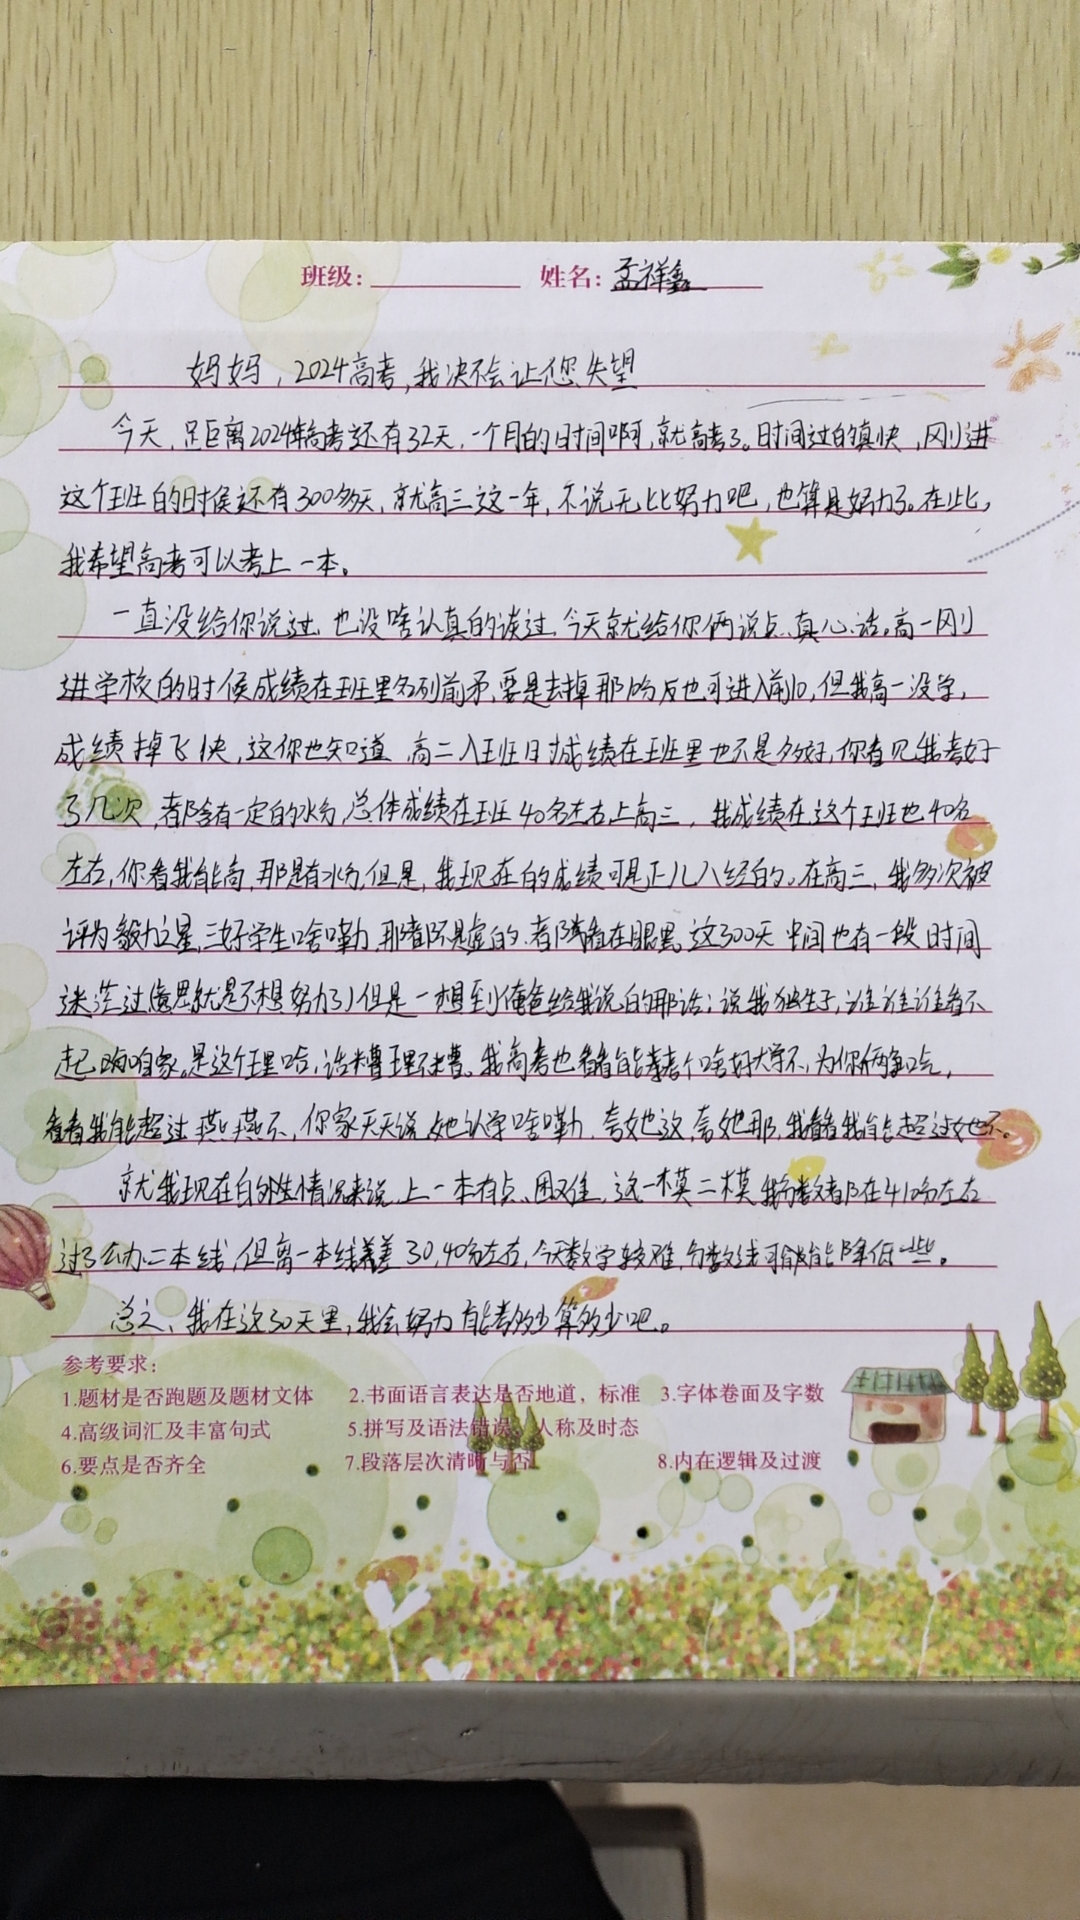 班级：　姓名：孟祥鑫
妈妈，2024高考，我决不会让您失望
今天，足距离2024年高考还有32天，一个月的时间啊，就高考了。时间过的真快，刚进
这个班的时候还有300多天，就高三这一年，不说无比努力吧，也算是努力了。在此，
我希望高考可以考上一本。
一直没给你说过，也没啥认真的谈过，今天就给你俩说点真心话。高一刚
进学校的时候成绩在班里名列前矛，要是去掉那 也可进入前10，但我高一没学，
成绩掉飞快，这你也知道，高二入班时成绩在班里也不是多好，你看见我考好
了几次，都含有一定的水分，总体成绩在班40名左右上高三，我成绩在这个班也40名
左右，你看我能高，那是有水分，但是，我现在的成绩可是正儿八经的。在高三，我多次被
评为毅力之星，三好学生啥嘞，那都不是虚的，都看在眼里，这300天中间也有一段时间
迷茫过（意思就是不想努力了）但是一想到俺爸给我说的那话：说我独生子，谁谁谁看不
起咱家。是这个理哈，话糙理不糙。我高考也看看能考个啥好大学不，为你俩争口气，
看看我能超过燕燕不，你家天天说她认学啥嘞，夸她这，夸她那，我看看我能超过她不。
就我现在的外性情况来说，上一本有点困难，这一模二模我分数都在410分左右
过了公办二本线，但离一本线差30，40分左右，今天数学较难，分数线可能能降低一些。
总之，我在这30天里，我会努力，能考多少算多少吧。
参考要求：
1.题材是否跑题及题材文体　2.书面语言表达是否地道，标准　3.字体卷面及字数
4.高级词汇及丰富句式　5.拼写及语法错误，人称及时态
6.要点是否齐全　7.段落层次清晰与否　8.内在逻辑及过渡